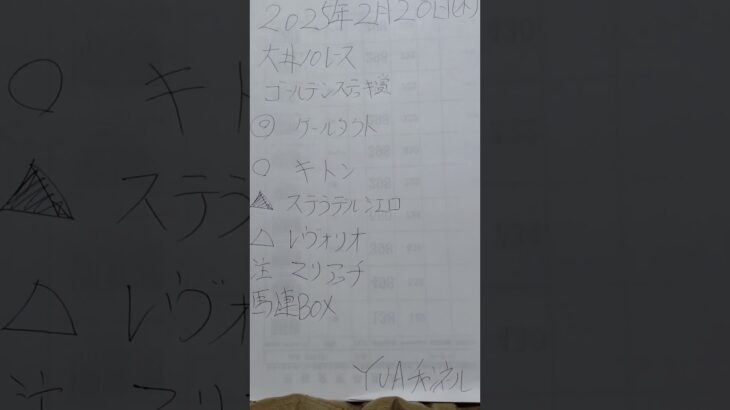 2025年2月20日(木)
大井10レース
ゴールデンステッキ賞
◎ グールタクト
○ キトン
▲ ステラテルシエロ
△ レヴォリオ
注 マリアッチ
馬連BOX
YUAチャンネル